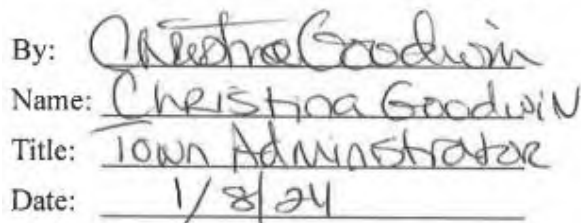 By: Christina Goodwin
Name: Christina Goodwin
Title: Town Adminstrator
Date: 1/8/24